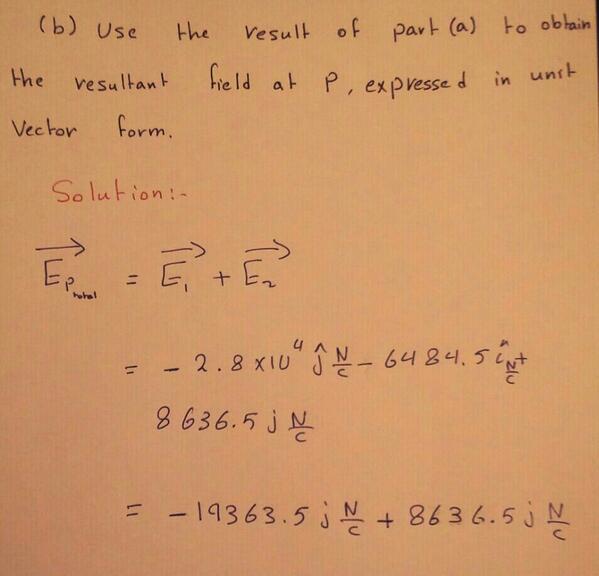 (b) Use the result of part (a) to obtain
the resultant field at P, expressed in unit
Vector form.
Solution:-
\vec{E}_{P_{total}} = \vec{E}_1 + \vec{E}_2
= - 2.8 ×10^4 ĵ N/C - 6484.5 î N/C +
8636.5 j N/C
= - 19363.5 j N/C + 8636.5 j N/C